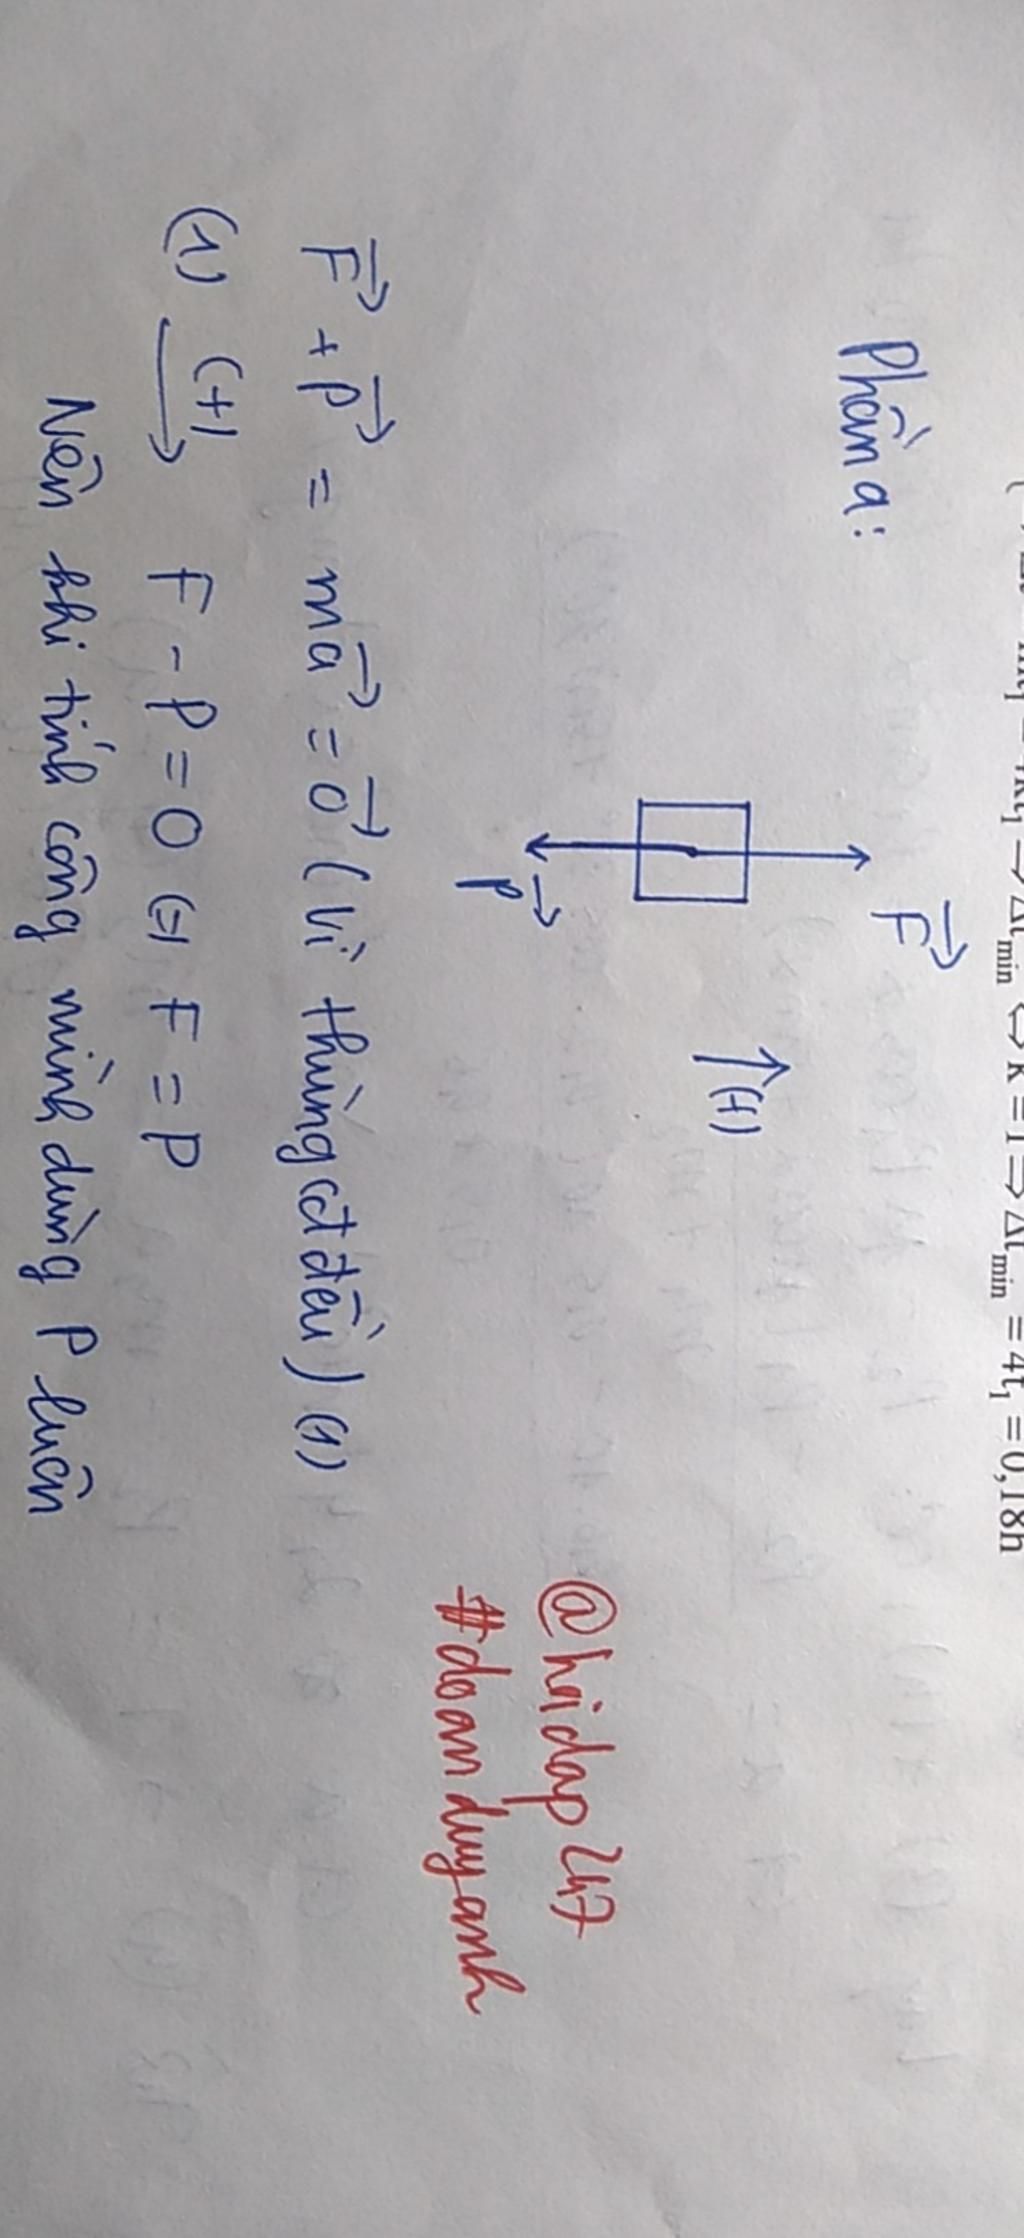 min ⇔ k = 1 ⇒ Δt min = 4t₁ = 0,18h
Phần a:
F⃗
(+)
P⃗
@hoidap247
#doanduyanh
F⃗ + P⃗ = ma⃗ = 0⃗ (vì thùng cđ đều) (1)
(1) (+)→ F - P = 0 (=) F = P
Nên khi tính công mình dùng P luôn